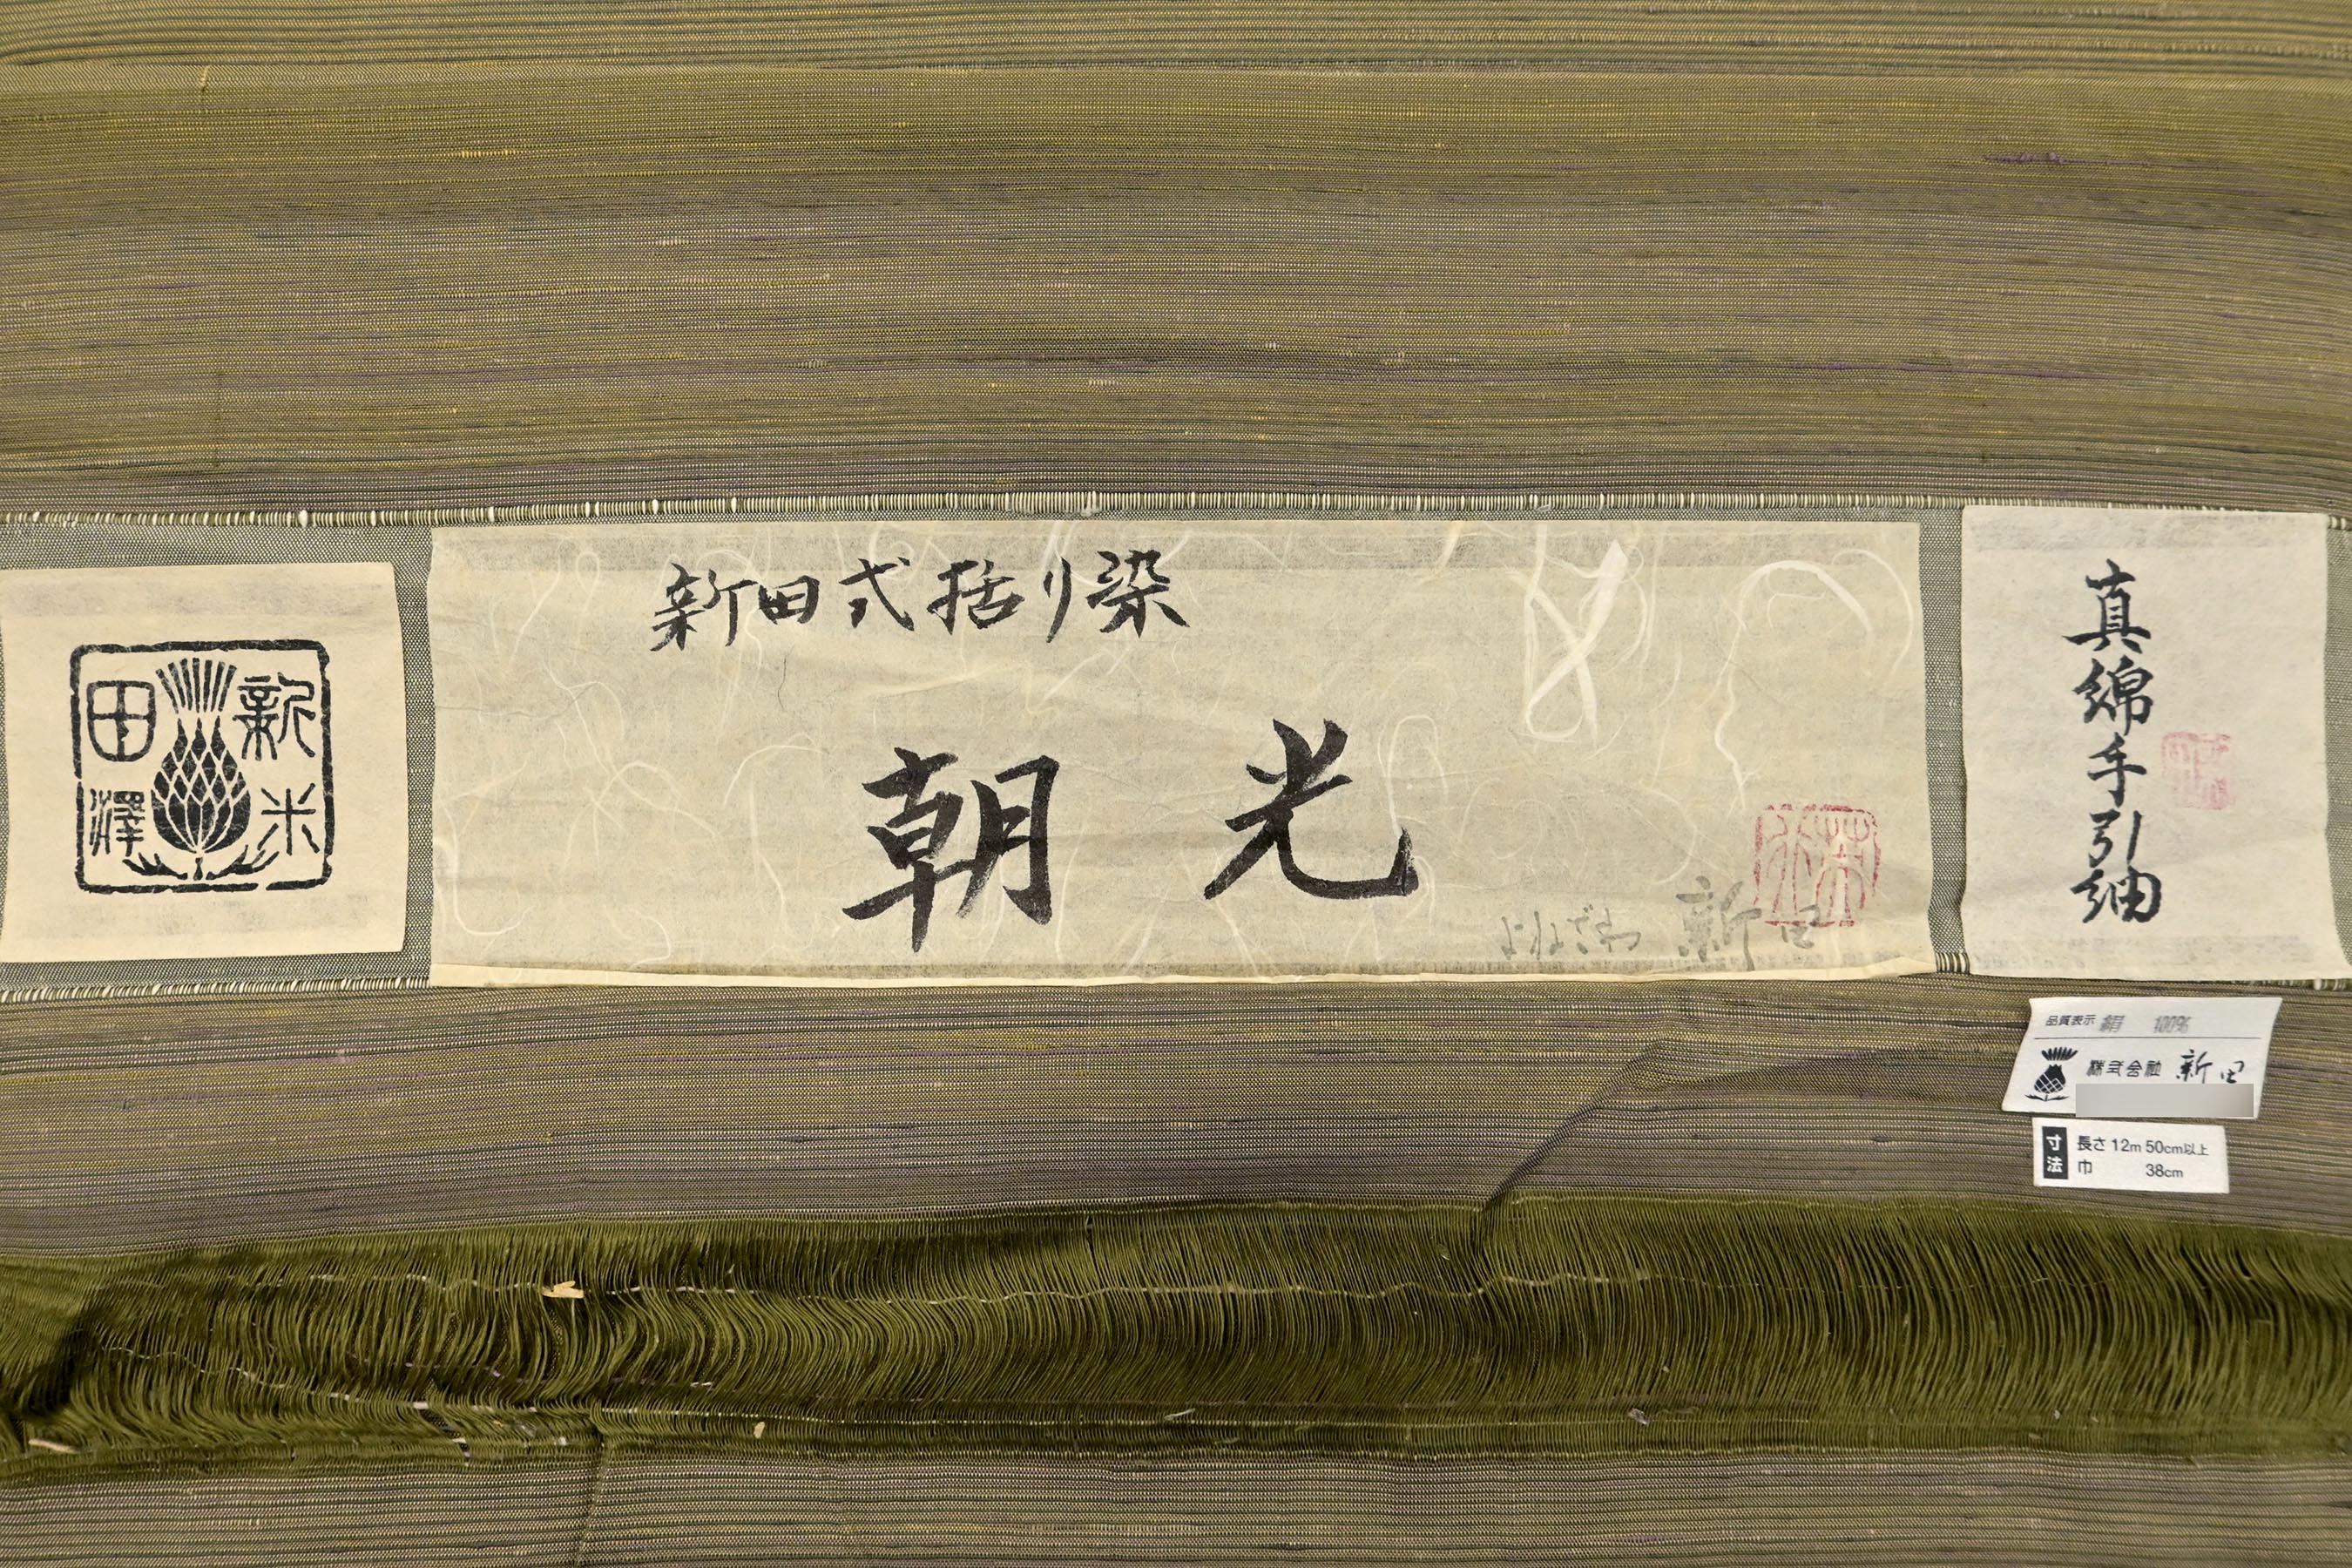 新田
米澤
新田式括り染
朝光
よねざわ 新田
真綿手引紬
品質表示 絹 100%
株式会社 新田
寸法
長さ 12m 50cm以上
巾 38cm